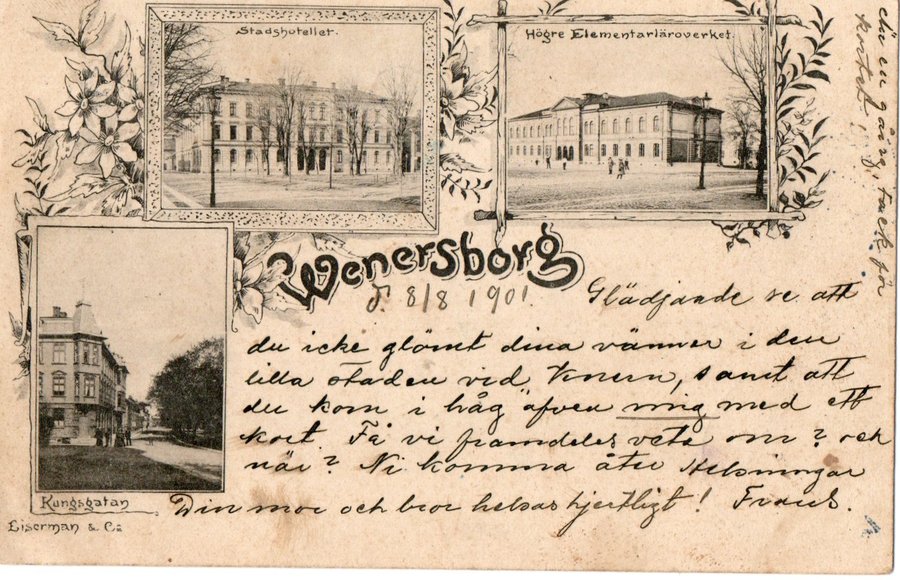 Stadshotellet.
Högre Elementarläroverket.
Wenersborg
d. 8/8 1901.
Glädjande se att
du icke glömt dina vänner i den
lilla staden vid Venern, samt att
du kom i håg äfven mig med ett
kort. Få vi framdeles veta om? och
när? Ni komma åter Helsningar
Din mor och bror helsas hjertligt! Frans.
Kungsgatan
Eiserman & Co
än en gång, tack för
kortet!